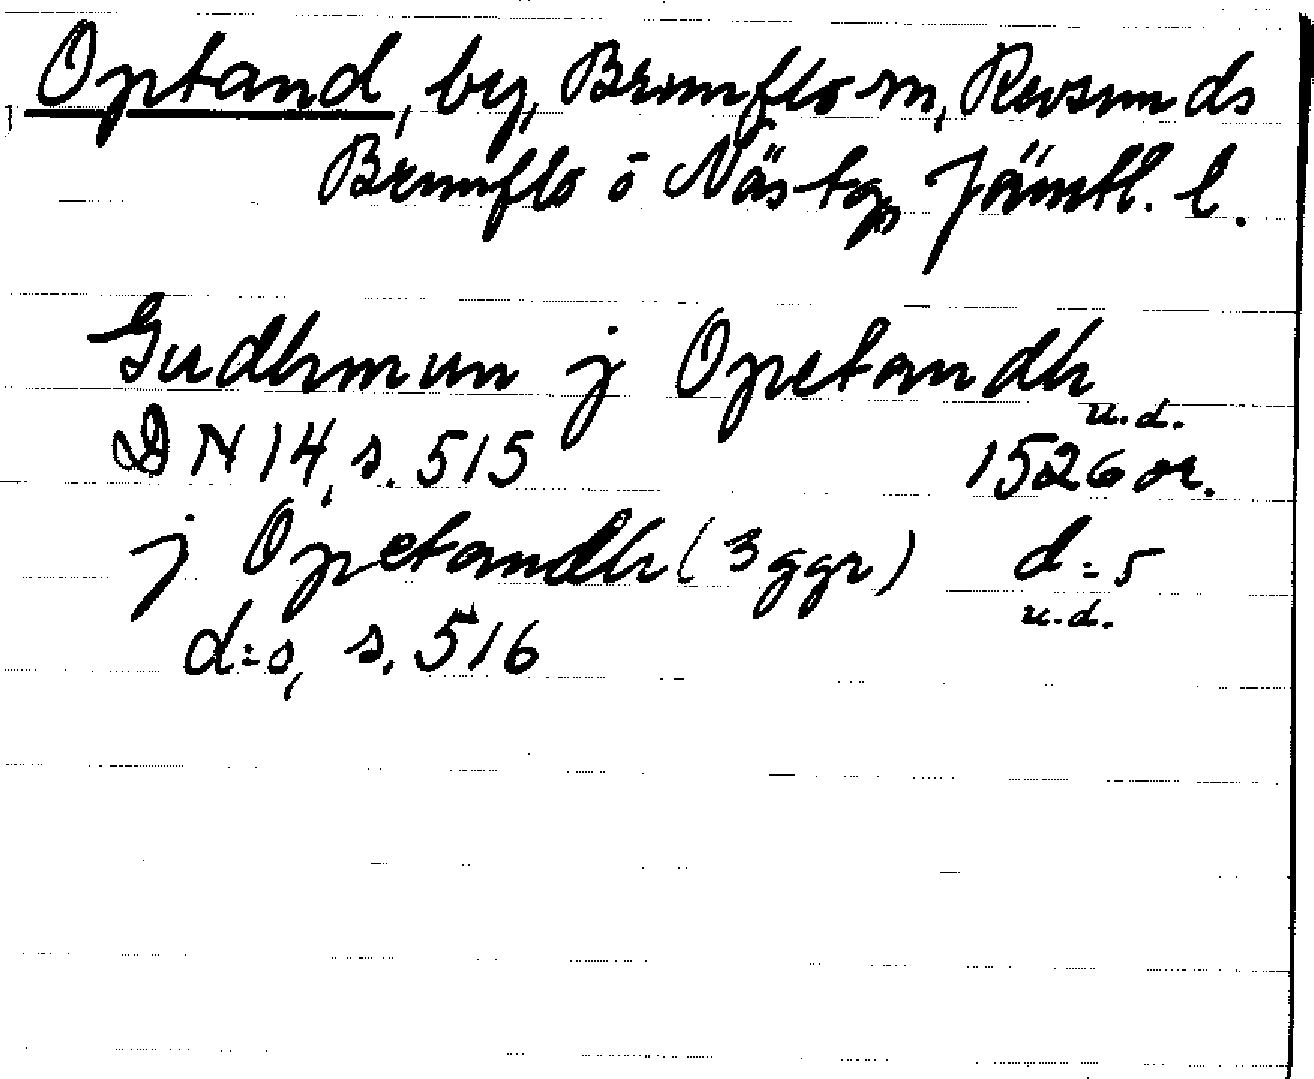 Optand, by, Brunflo sn, Revsunds
Brunflo o Näs tg, Jämtl. l.
Gudhmun j Opetandh
u.d.
DN 14, s. 515 1526 or.
j Opetandh (3 ggr) d:s
u.d.
d:o, s. 516